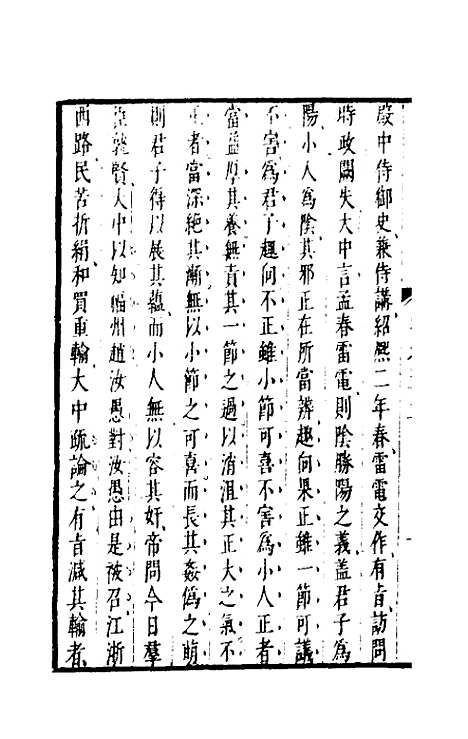 殿中侍御史兼侍講紹熙二年春雷電交作有旨訪問
時政闕失大中言孟春雷電則陰勝陽之義蓋君子為
陽小人為陰其邪正在所當辨趨向果正雖一節可議
不害為君子趨向不正雖小節可喜不害為小人正者
當益厚其養無責其一節之過以消沮其正大之氣不
正者當深絶其漸無以小節之可喜而長其姦偽之萌
則君子得以展其藴而小人無以容其奸帝問今日羣
臣孰賢大中以知福州趙汝愚對汝愚由是被召江浙
西路民苦折絹和買重輸大中疏論之有旨減其輸者